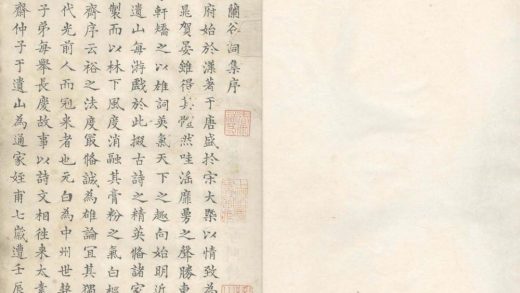 蘭谷詞集序
府始於漢著于唐盛於宋大槩以情致為
晁賀晏雖得其然哇滛靡曼之聲勝東
軒矯之以雄詞英氣天下之趣向始明近
遺山每游戲於此掇古詩之精英俻諸家
製而以林下風度消融其膏粉之氣白樞
齊序云裕之法度嚴俻誠為雄論宜其獨
代先前人而冠来者也元白為中州世契
子弟每舉長慶故事以詩文相徃来太素
齋仲子于遺山為通家姪甫七歲遭壬辰